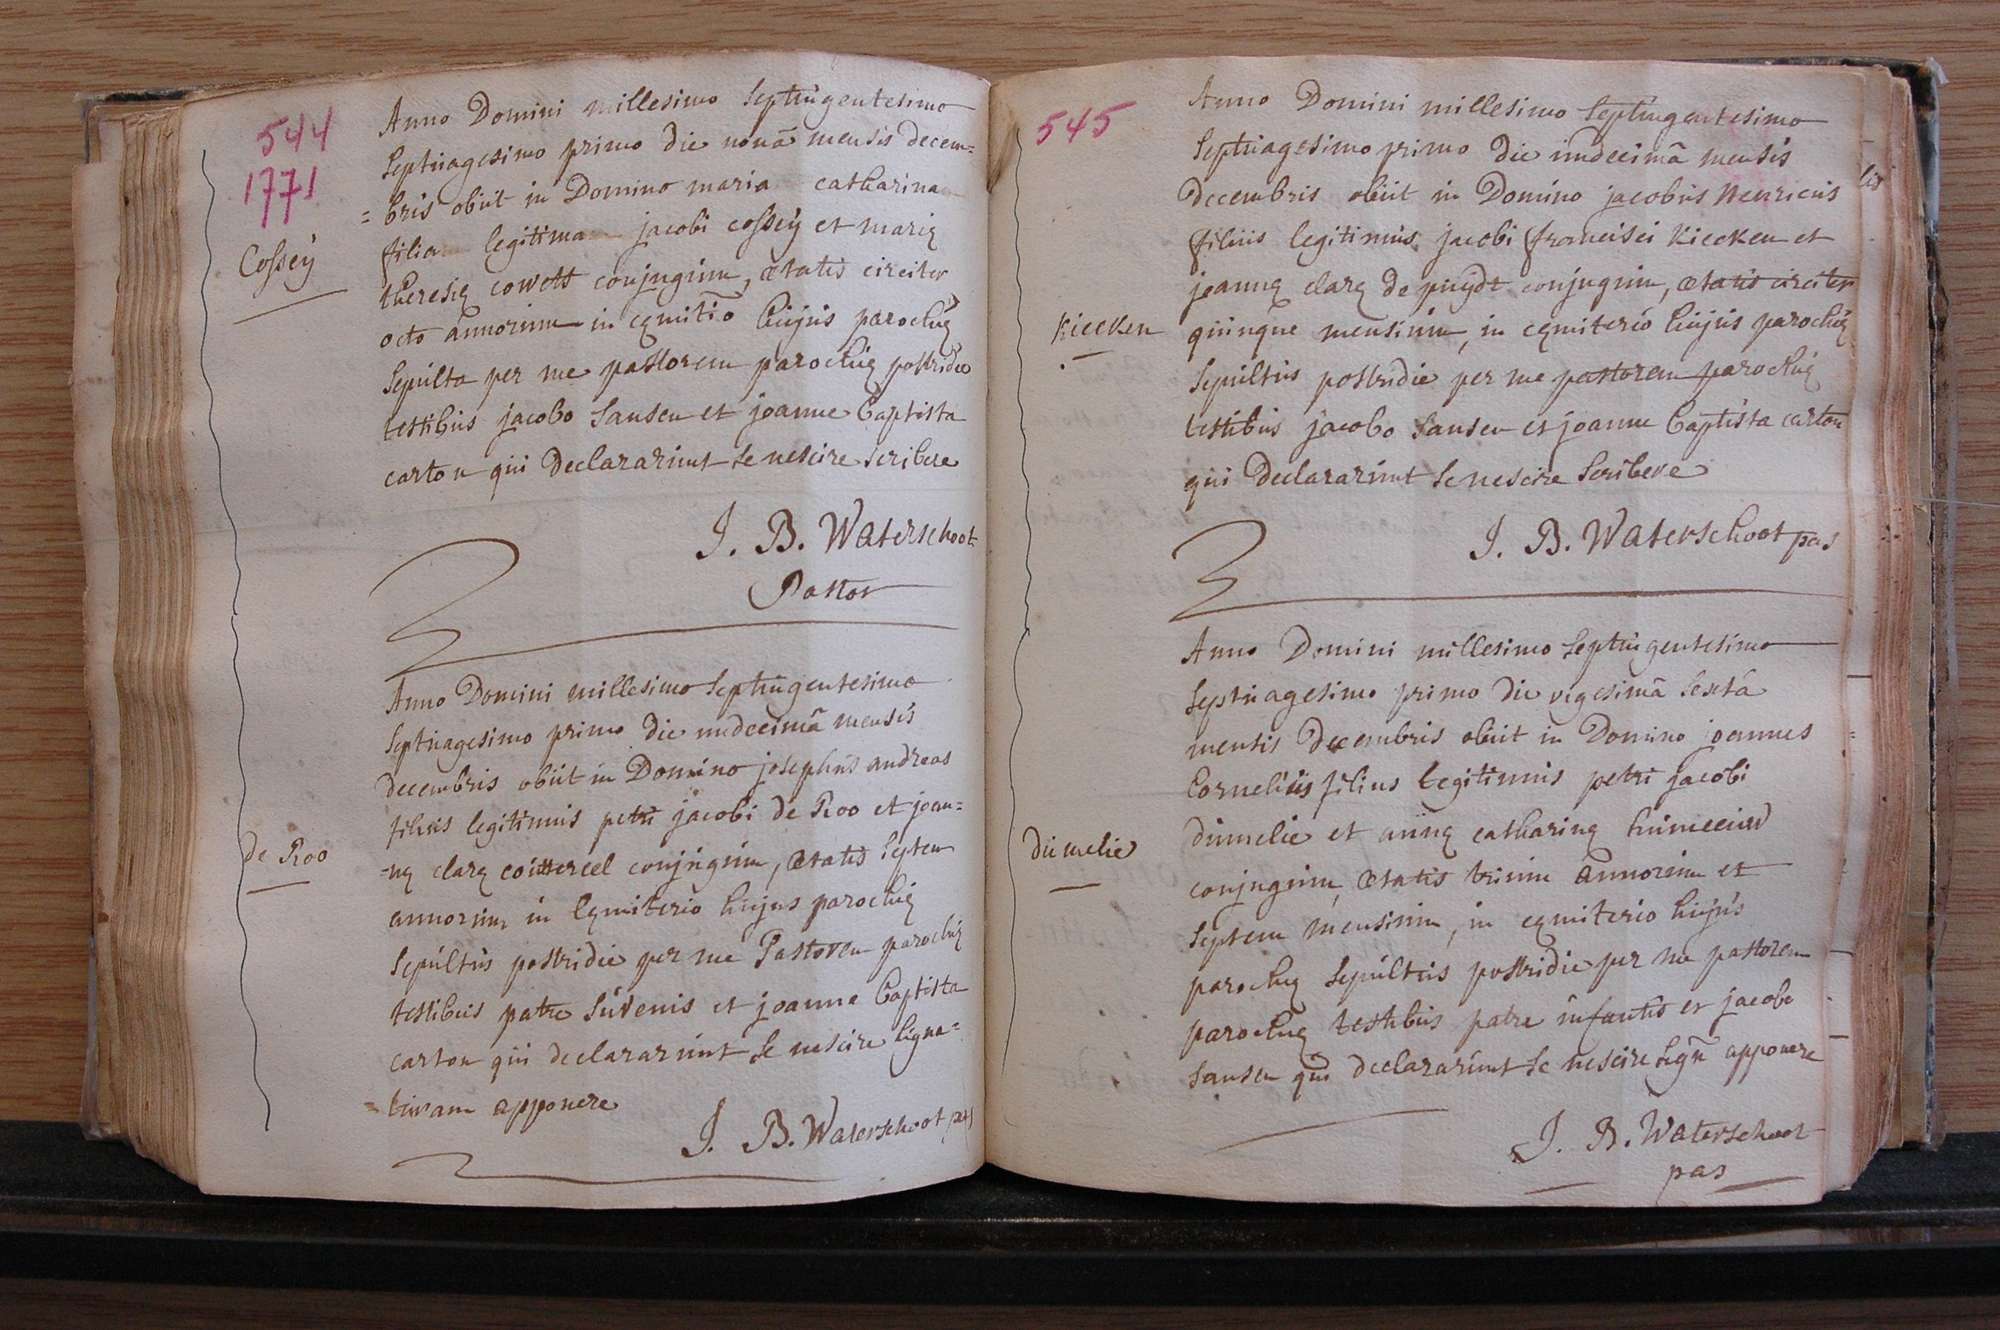 544
1771
Anno Domini millesimo septingentesimo
septuagesimo primo die nonâ mensis decem=
=bris obiit in Domino maria catharina
filia legitima jacobi cossey et mariæ
theresiæ cowett conjugum, ætatis circiter
octo annorum in cæmitio hujus parochiæ
sepulta per me pastorem parochiæ postridie
testibus jacobo Sansen et joanne baptista
carton qui declararunt se nescire scribere
J. B. Waterschoot
Pastor
Cossey
Anno Domini millesimo septingentesimo
septuagesimo primo die undecimâ mensis
decembris obiit in Domino josephus andreas
filius legitimus petri jacobi de Roo et joan=
=næ claræ couttereel conjugum, ætatis septem
annorum in cæmiterio hujus parochiæ
sepultus postridie per me Pastorem parochiæ
testibus patre juvenis et joanne baptista
carton qui declararunt se nescire signa=
=turam apponere
J. B. Waterschoot pas
de Roo
545
Anno Domini millesimo septingentesimo
septuagesimo primo die undecimâ mensis
decembris obiit in Domino jacobus Henricus
filius legitimus jacobi francisci Kiecken et
joannæ claræ de puydt conjugum, ætatis circiter
quinque mensium, in cæmiterio hujus parochiæ
sepultus postridie per me pastorem parochiæ
testibus jacobo Sansen et joanne baptista carton
qui declararunt se nescire scribere
J. B. Waterschoot pas
Kiecken
Anno Domini millesimo septingentesimo
septuagesimo primo die vigesimâ sextâ
mensis decembris obiit in Domino joannes
Cornelius filius legitimus petri jacobi
dumelie et annæ catharinæ
conjugum, ætatis trium annorum et
septem mensium, in cæmiterio hujus
parochiæ sepultus postridie per me pastorem
parochiæ testibus patre infantis et jacobo
Sansen qui declararunt se nescire sign apponere
J. B. Waterschoot
pas
dumelie